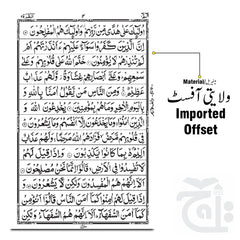 اُولٰٓئِكَ عَلٰى هُدًى مِّنْ رَّبِّهِمْ وَاُولٰٓئِكَ هُمُ الْمُفْلِحُوْنَ
اِنَّ الَّذِيْنَ كَفَرُوْا سَوَآءٌ عَلَيْهِمْ ءَاَنْذَرْتَهُمْ اَمْ
لَمْ تُنْذِرْهُمْ لَا يُؤْمِنُوْنَ خَتَمَ اللّٰهُ عَلٰى قُلُوْبِهِمْ وَعَلٰى
سَمْعِهِمْ وَعَلٰٓى اَبْصَارِهِمْ غِشَاوَةٌ وَّلَهُمْ عَذَابٌ
عَظِيْمٌ وَمِنَ النَّاسِ مَنْ يَّقُوْلُ اٰمَنَّا بِاللّٰهِ وَ
بِالْيَوْمِ الْاٰخِرِ وَمَا هُمْ بِمُؤْمِنِيْنَ يُخٰدِعُوْنَ اللّٰهَ وَ
الَّذِيْنَ اٰمَنُوْا وَمَا يَخْدَعُوْنَ اِلَّآ اَنْفُسَهُمْ وَمَا يَشْعُرُوْنَ
فِيْ قُلُوْبِهِمْ مَّرَضٌ فَزَادَهُمُ اللّٰهُ مَرَضًا وَلَهُمْ عَذَابٌ
اَلِيْمٌۢ بِمَا كَانُوْا يَكْذِبُوْنَ وَاِذَا قِيْلَ لَهُمْ
لَا تُفْسِدُوْا فِى الْاَرْضِ قَالُوْٓا اِنَّمَا نَحْنُ مُصْلِحُوْنَ
اَلَآ اِنَّهُمْ هُمُ الْمُفْسِدُوْنَ وَلٰكِنْ لَّا يَشْعُرُوْنَ وَ
اِذَا قِيْلَ لَهُمْ اٰمِنُوْا كَمَآ اٰمَنَ النَّاسُ قَالُوْٓا اَنُؤْمِنُ
كَمَآ اٰمَنَ السُّفَهَآءُ اَلَآ اِنَّهُمْ هُمُ السُّفَهَآءُ وَلٰكِنْ
Material
ولایتی آفسٹ
Imported
Offset